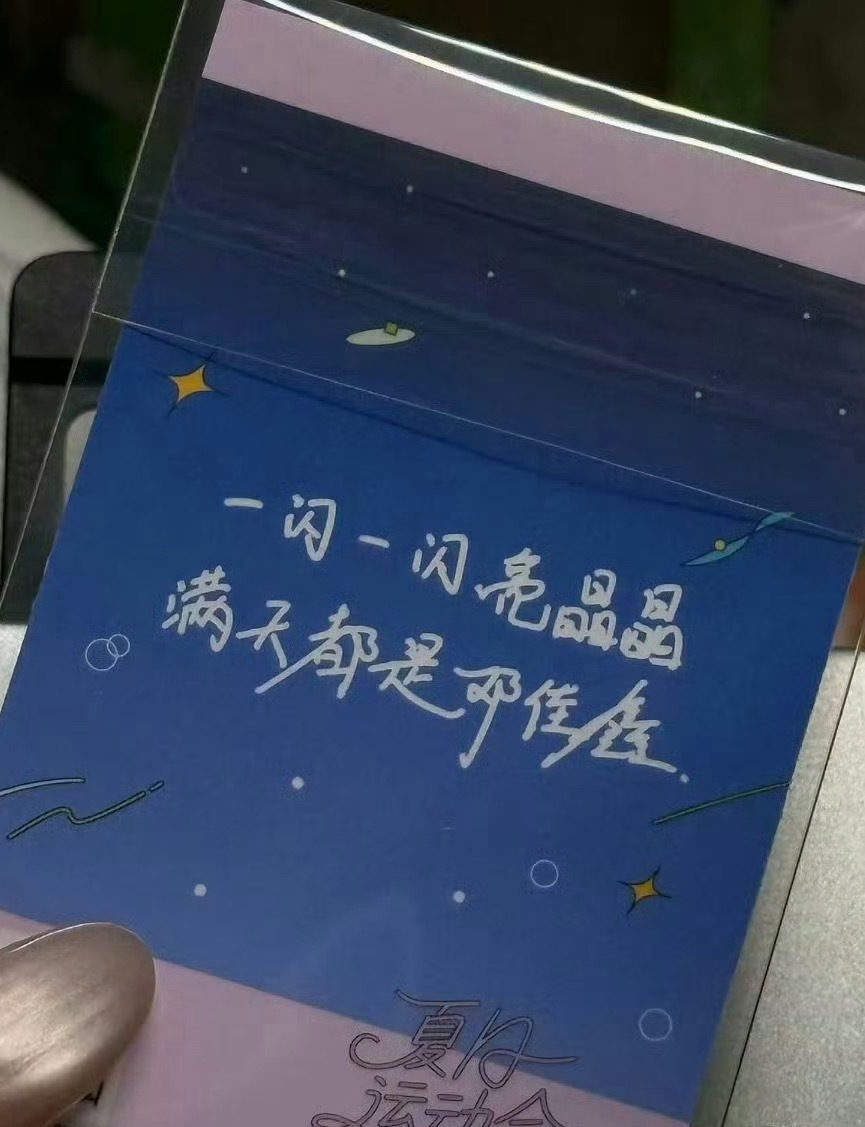 一闪一闪亮晶晶
满天都是邓佳鑫.
夏日
运动会